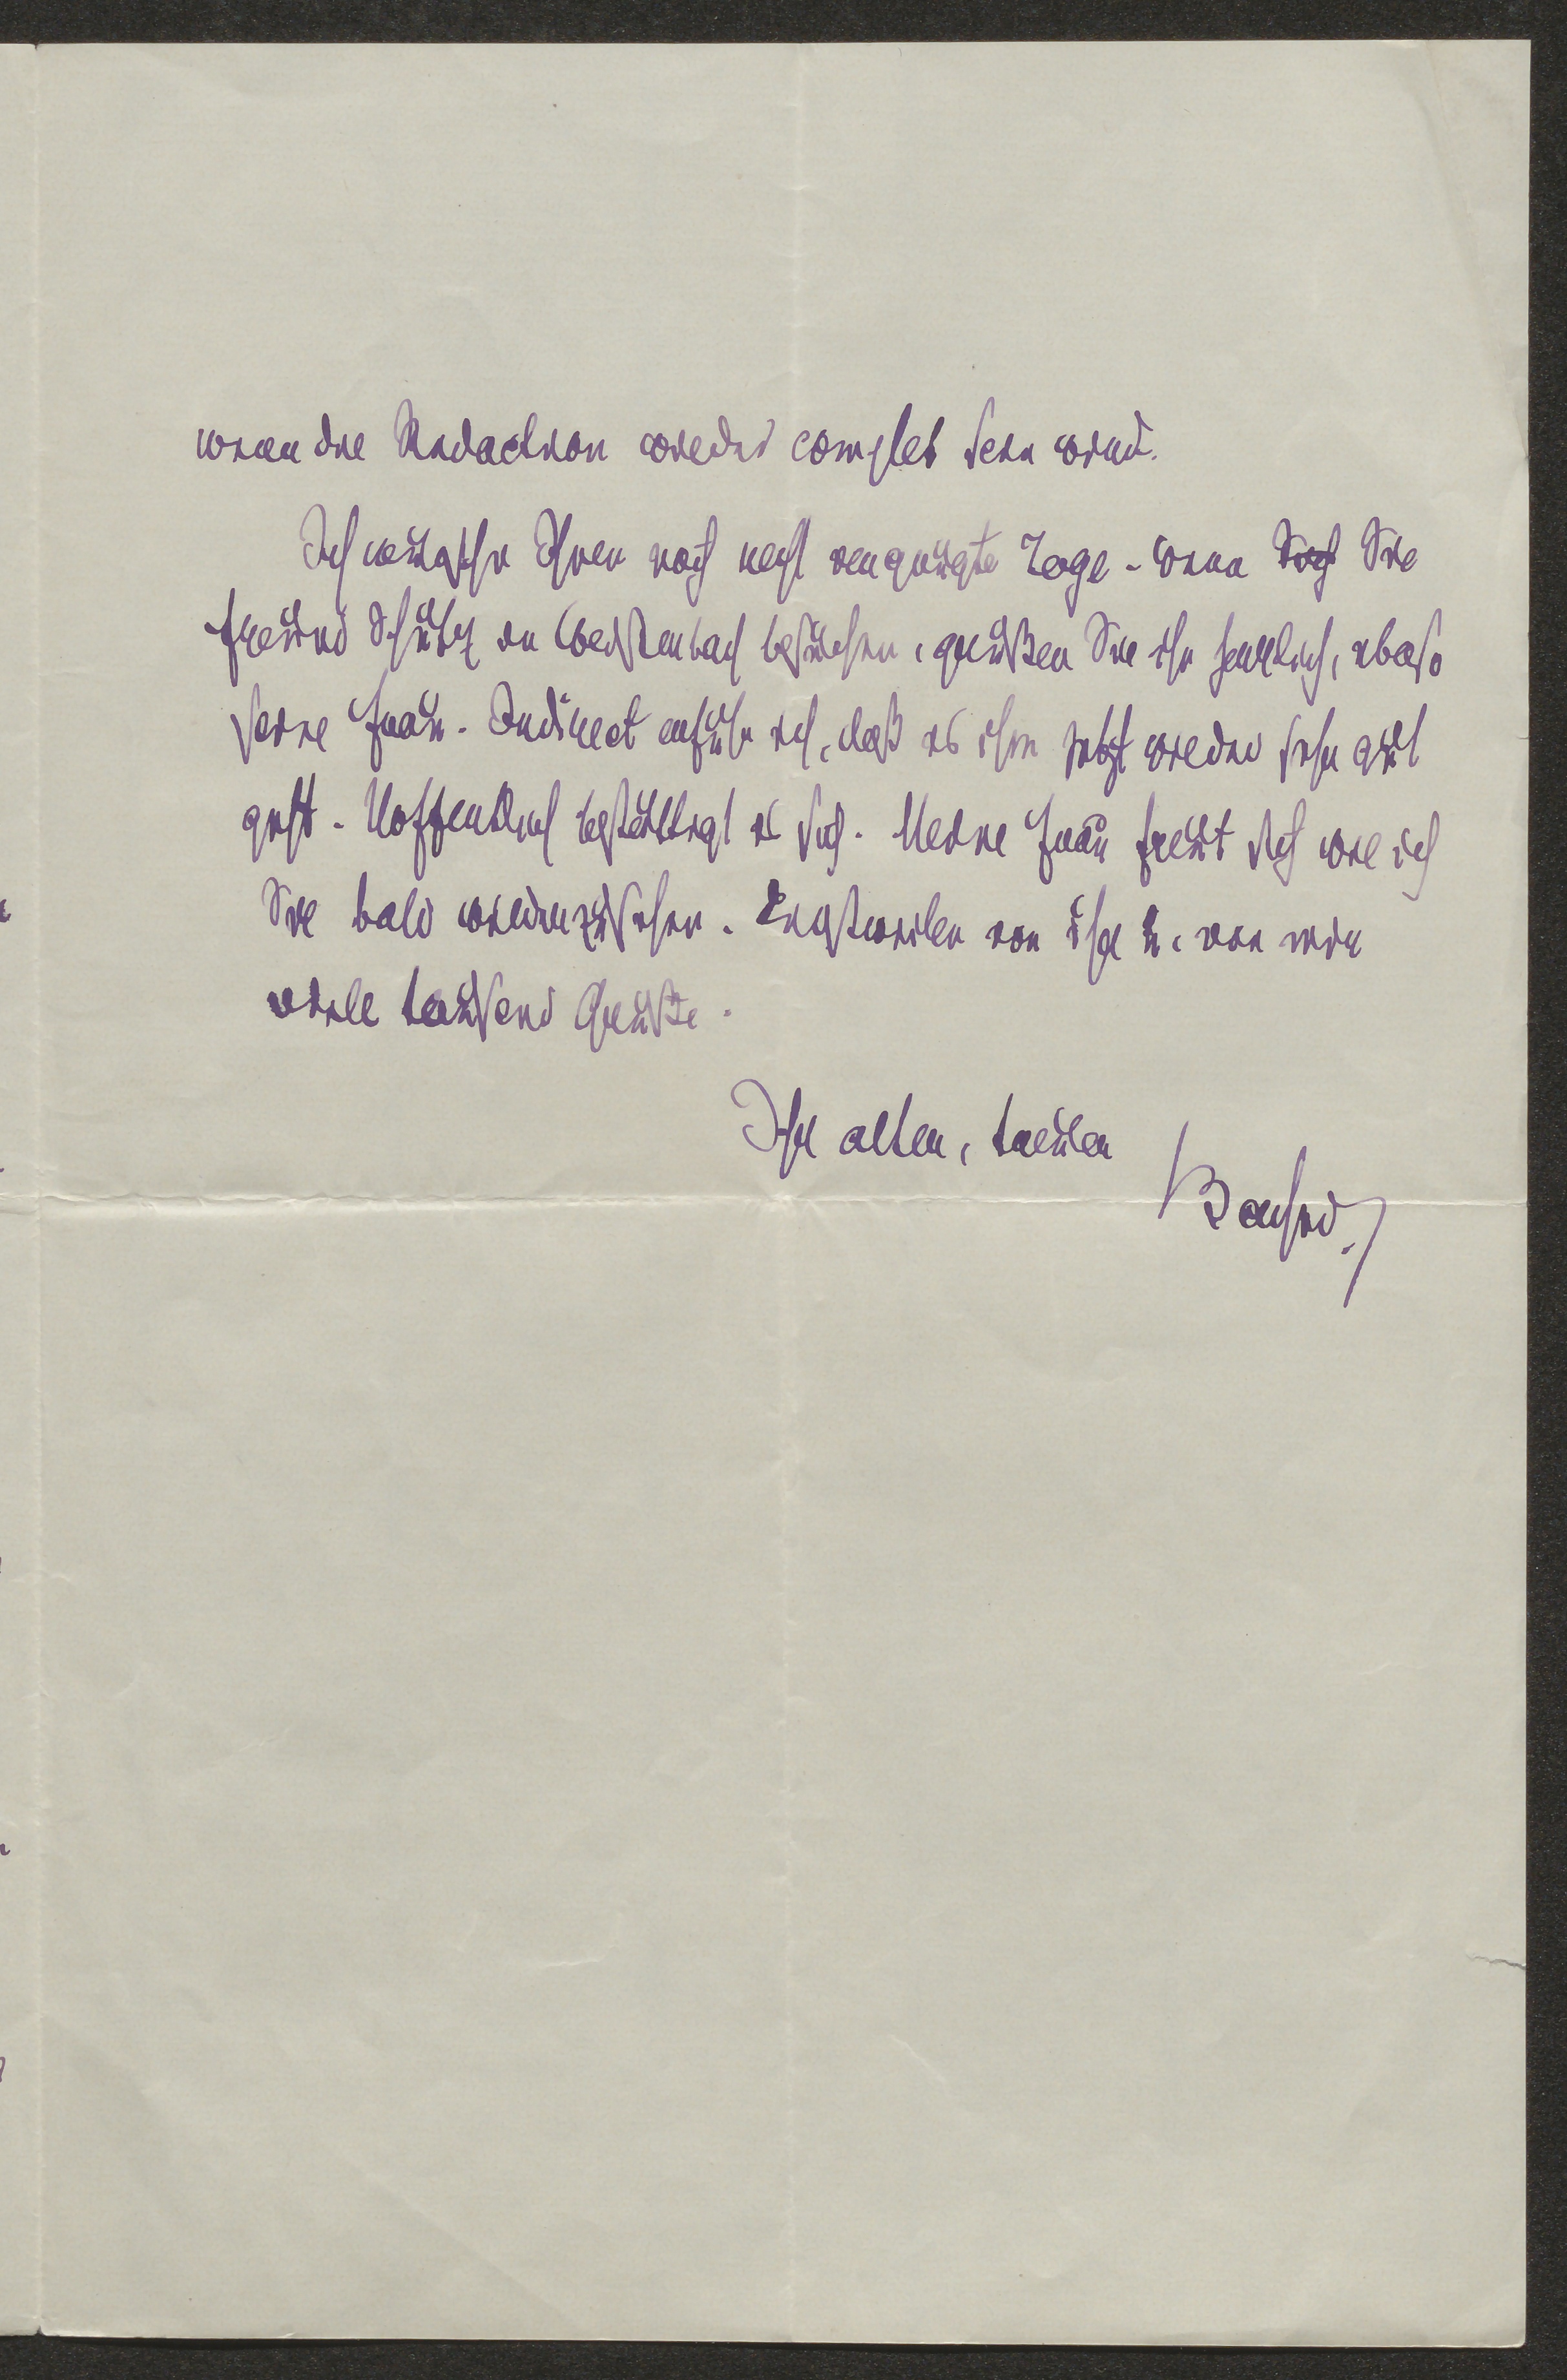 wenn die Redaction wieder complet sein wird.
Ich wünsche Ihnen noch recht vergnügte Tage. Wenn Sie
Freund Schütz in Weißenbach besuchen, grüßen Sie ihn herzlich, ebenso
seine Frau. Indirect erfuhr ich, daß es ihm jetzt wieder sehr gut
geht. Hoffentlich bestättigt es sich. Meine Frau freut sich wie ich
Sie bald wiederzusehen. Einstweilen von ihr u. von mir
viele tausend Grüße.
Ihr alter, treuer